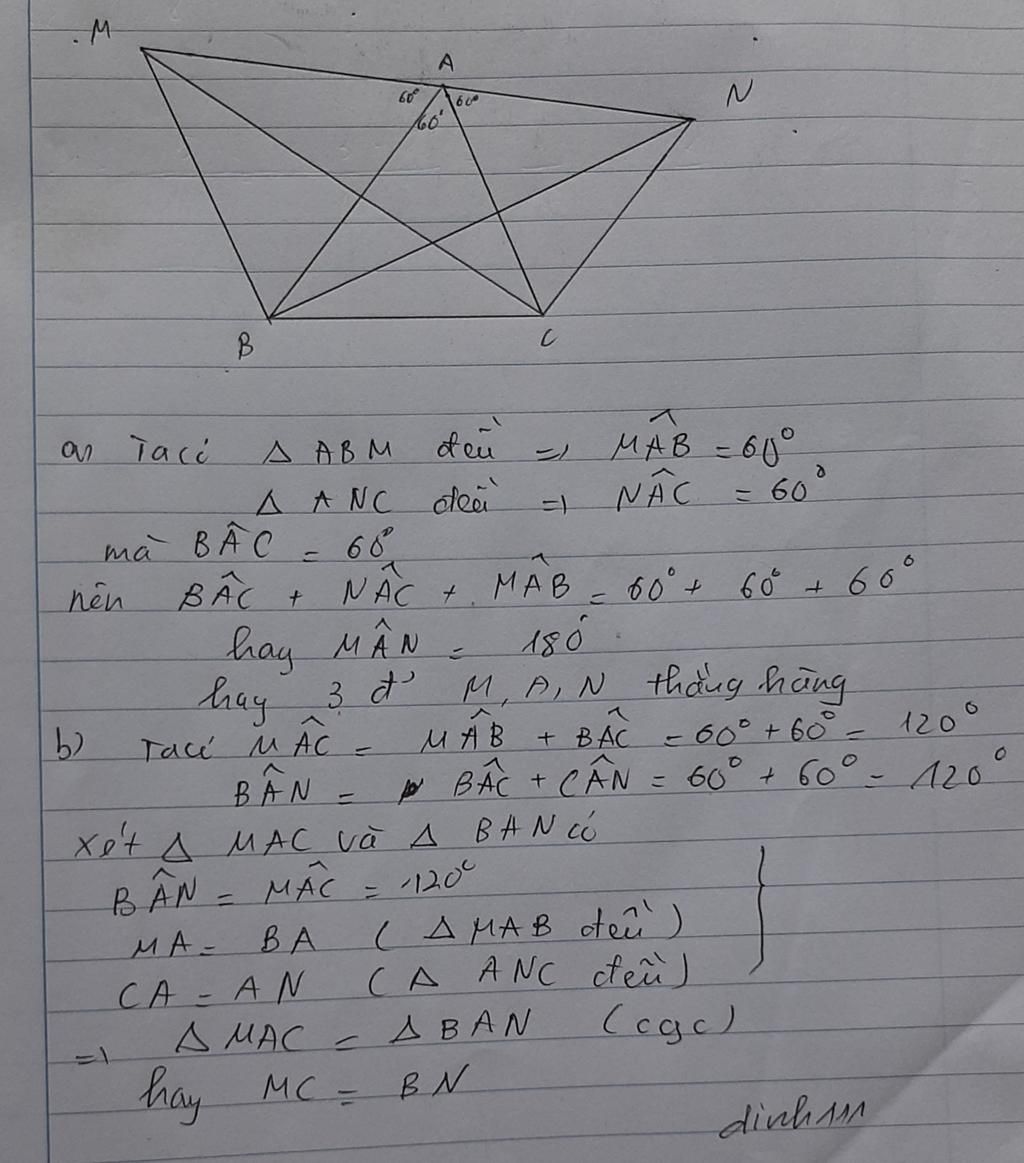 M
A
N
60°
60°
60°
B
C
a) Ta có Δ ABM đều => MÂB = 60°
Δ ANC đều => NÂC = 60°
mà BÂC = 60°
nên BÂC + NÂC + MÂB = 60° + 60° + 60°
hay MÂN = 180°
hay 3 đ' M, A, N thẳng hàng
b) Ta có MÂC = MÂB + BÂC = 60° + 60° = 120°
BÂN = BÂC + CÂN = 60° + 60° = 120°
xét Δ MAC và Δ BAN có
BÂN = MÂC = 120°
MA = BA ( Δ MAB đều )
CA = AN ( Δ ANC đều )
=> Δ MAC = Δ BAN (cgc)
hay MC = BN
dinh111